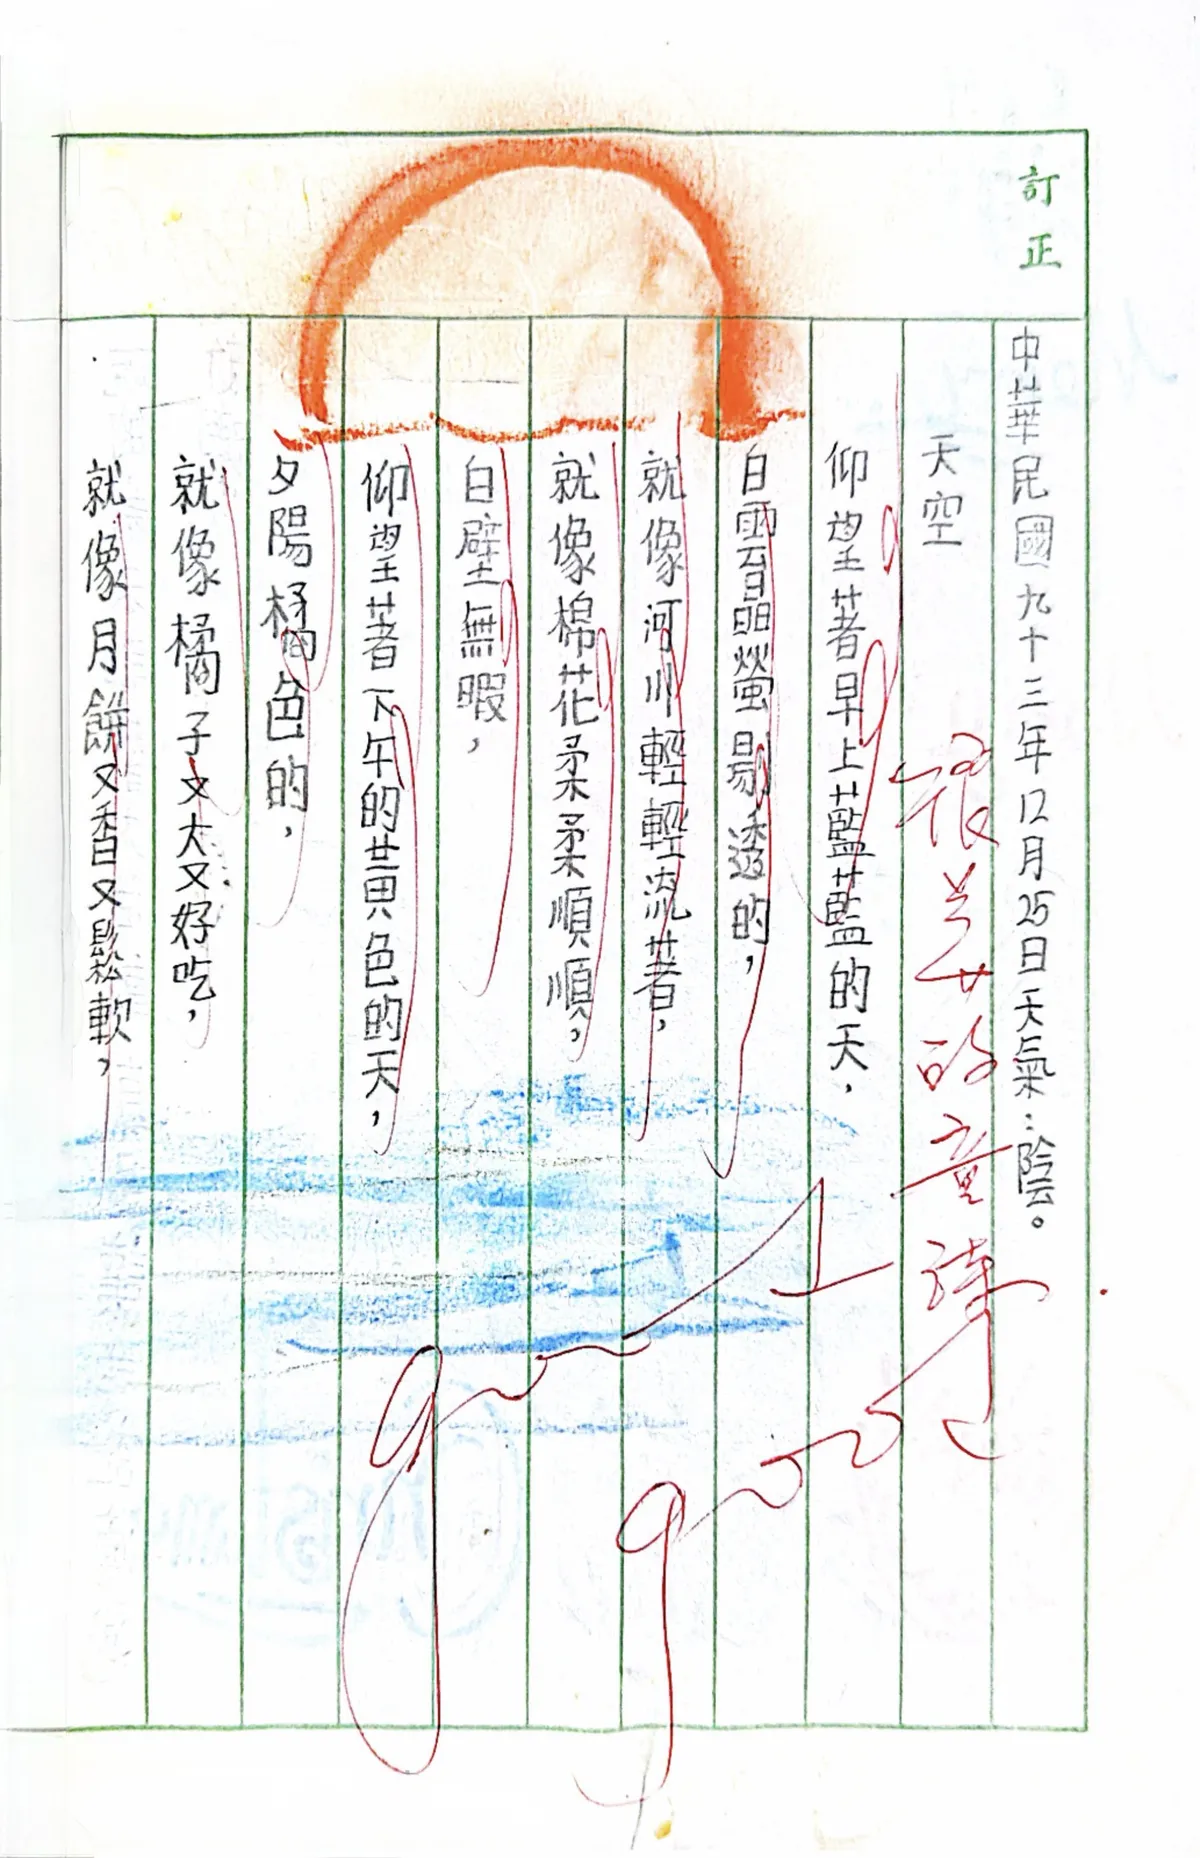 訂正
中華民國九十三年12月25日天氣:陰。
天空
很美的童詩
仰望著早上藍藍的天,
白雲晶螢剔透的,
就像河川輕輕流著,
就像棉花柔柔順順,
白壁無暇,
仰望著下午的黃色的天,
夕陽橘色的,
就像橘子又大又好吃,
就像月餅又香又鬆軟,